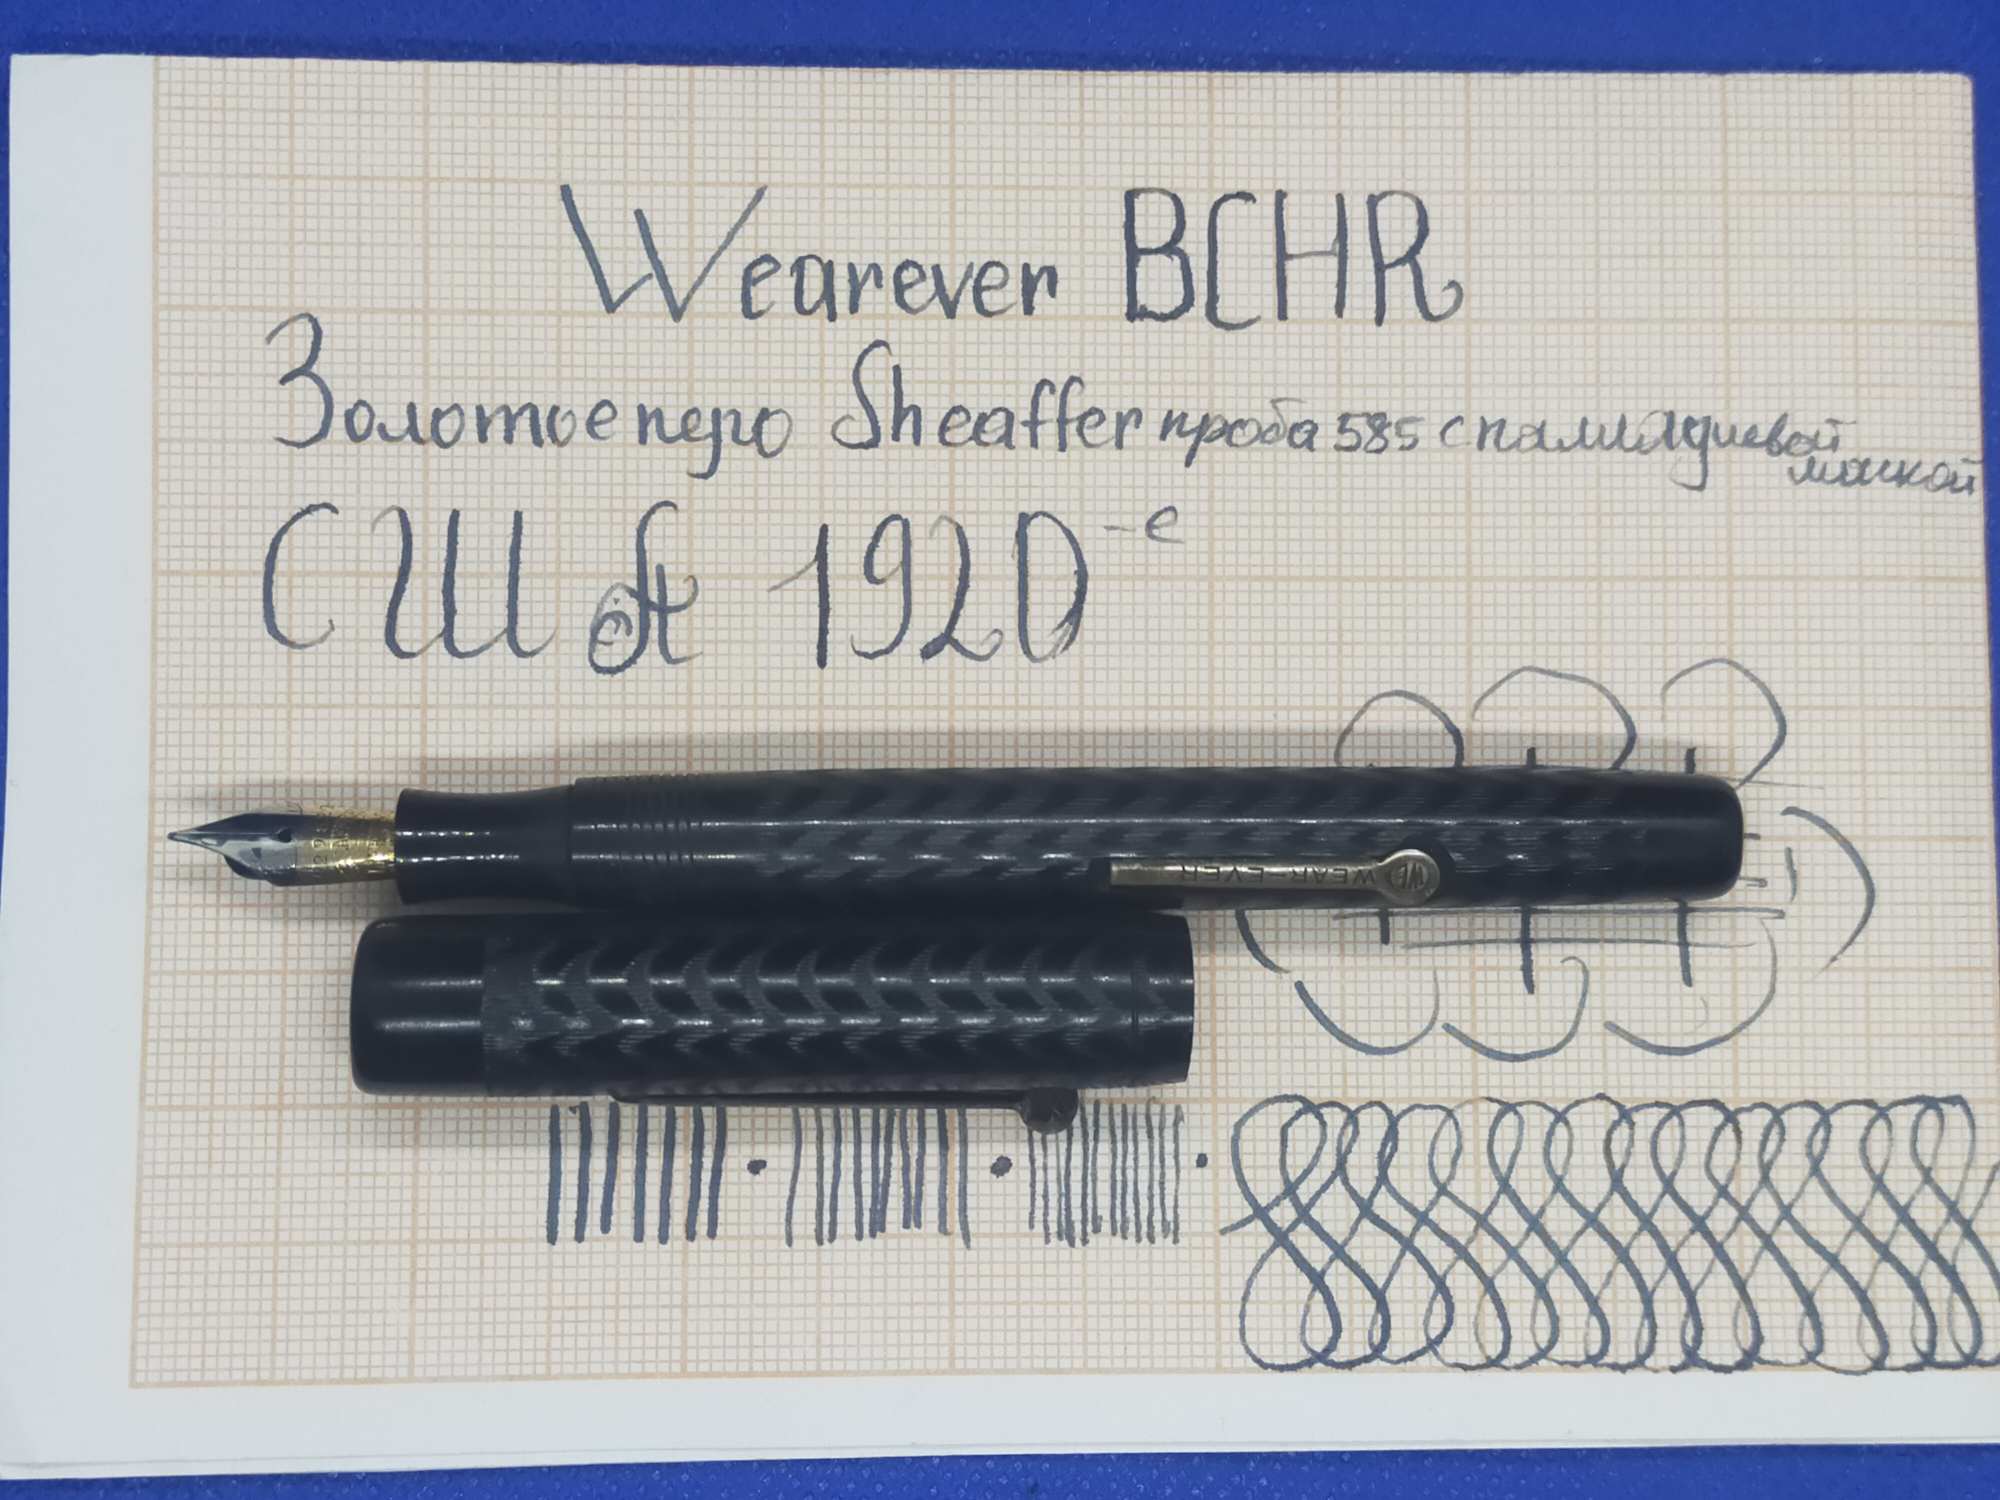 Wearever BCHR
Золотое перо Sheaffer проба 585 с палладиевой
маской
США 1920-е
WEAR-EVER WE